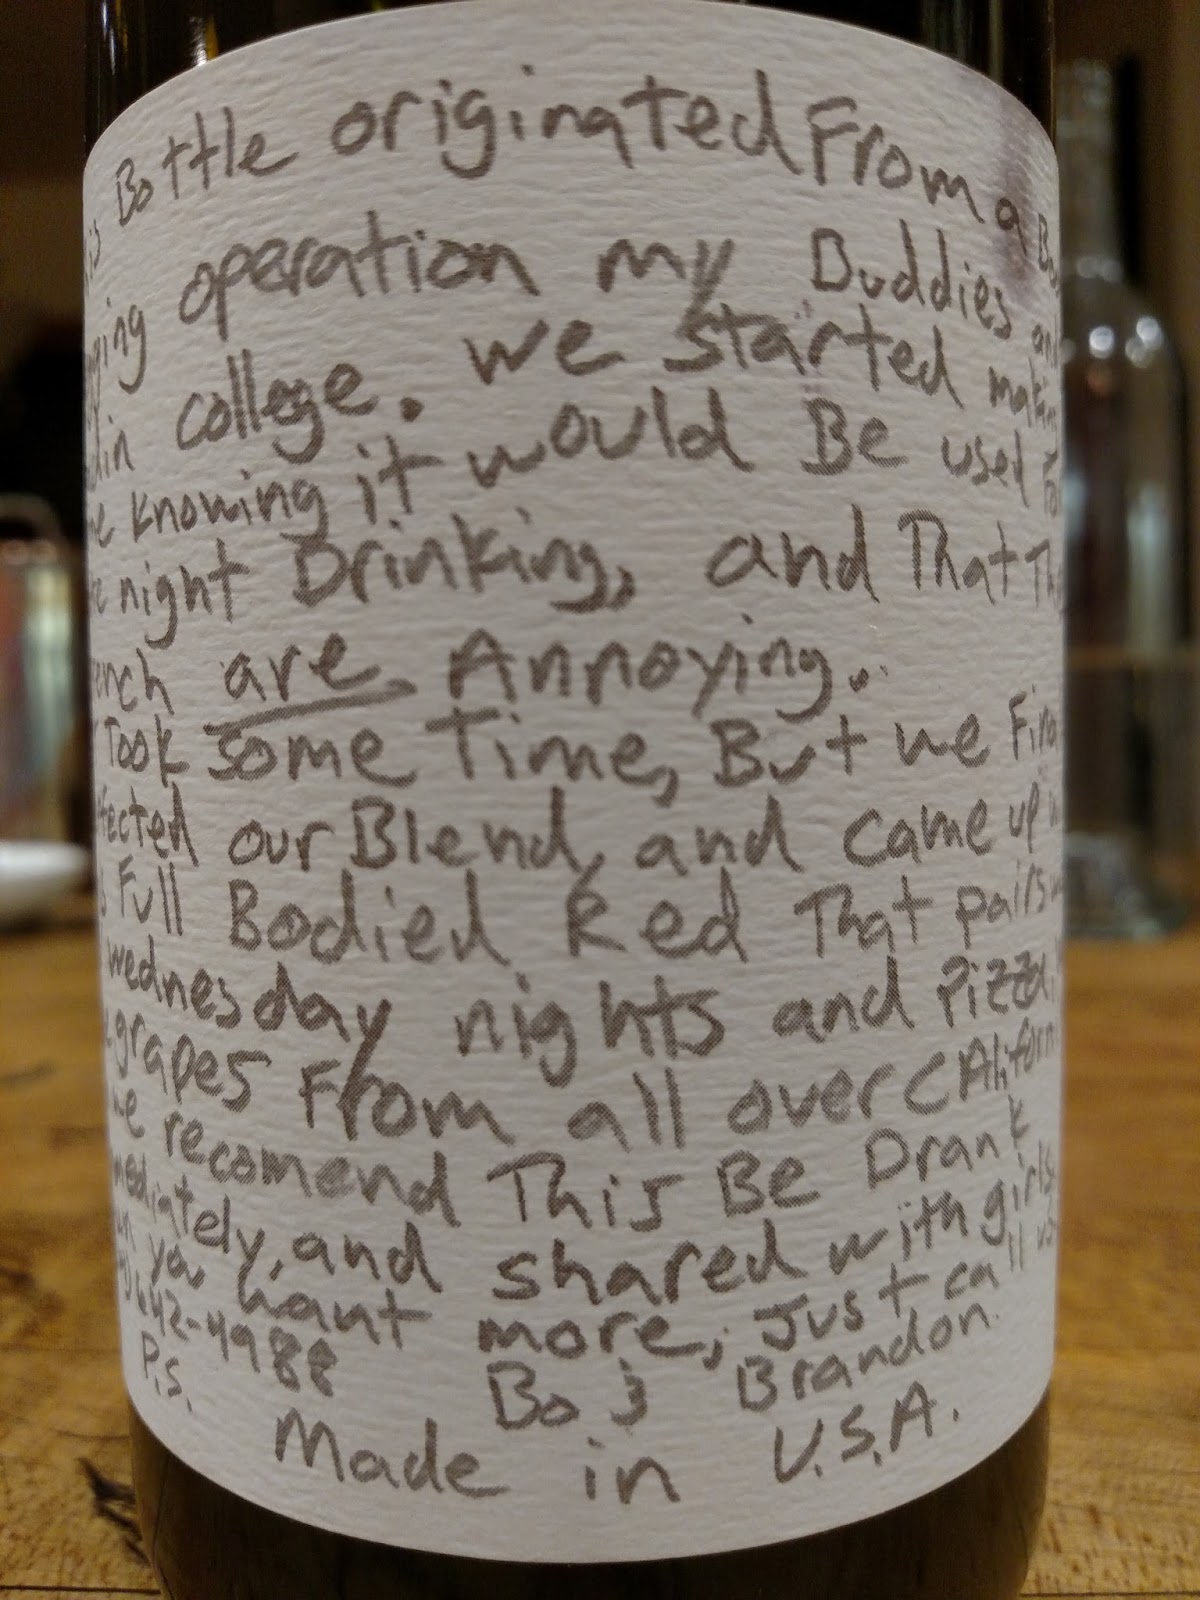 is Bottle originated From a Bo
ping operation my Buddies and
in college. we started making
knowing it would Be used For
night Drinking, and That Th
ench are Annoying.
Took some Time, But we Fina
fected our Blend, and came up w
s Full Bodied Red That pairs w
wednesday nights and Pizza.
grapes From all over CAliforn
we recomend This Be Drank
mediately, and shared with girls.
you want more, Just call us
642-4988 Bo & Brandon.
P.S. Made in U.S.A.